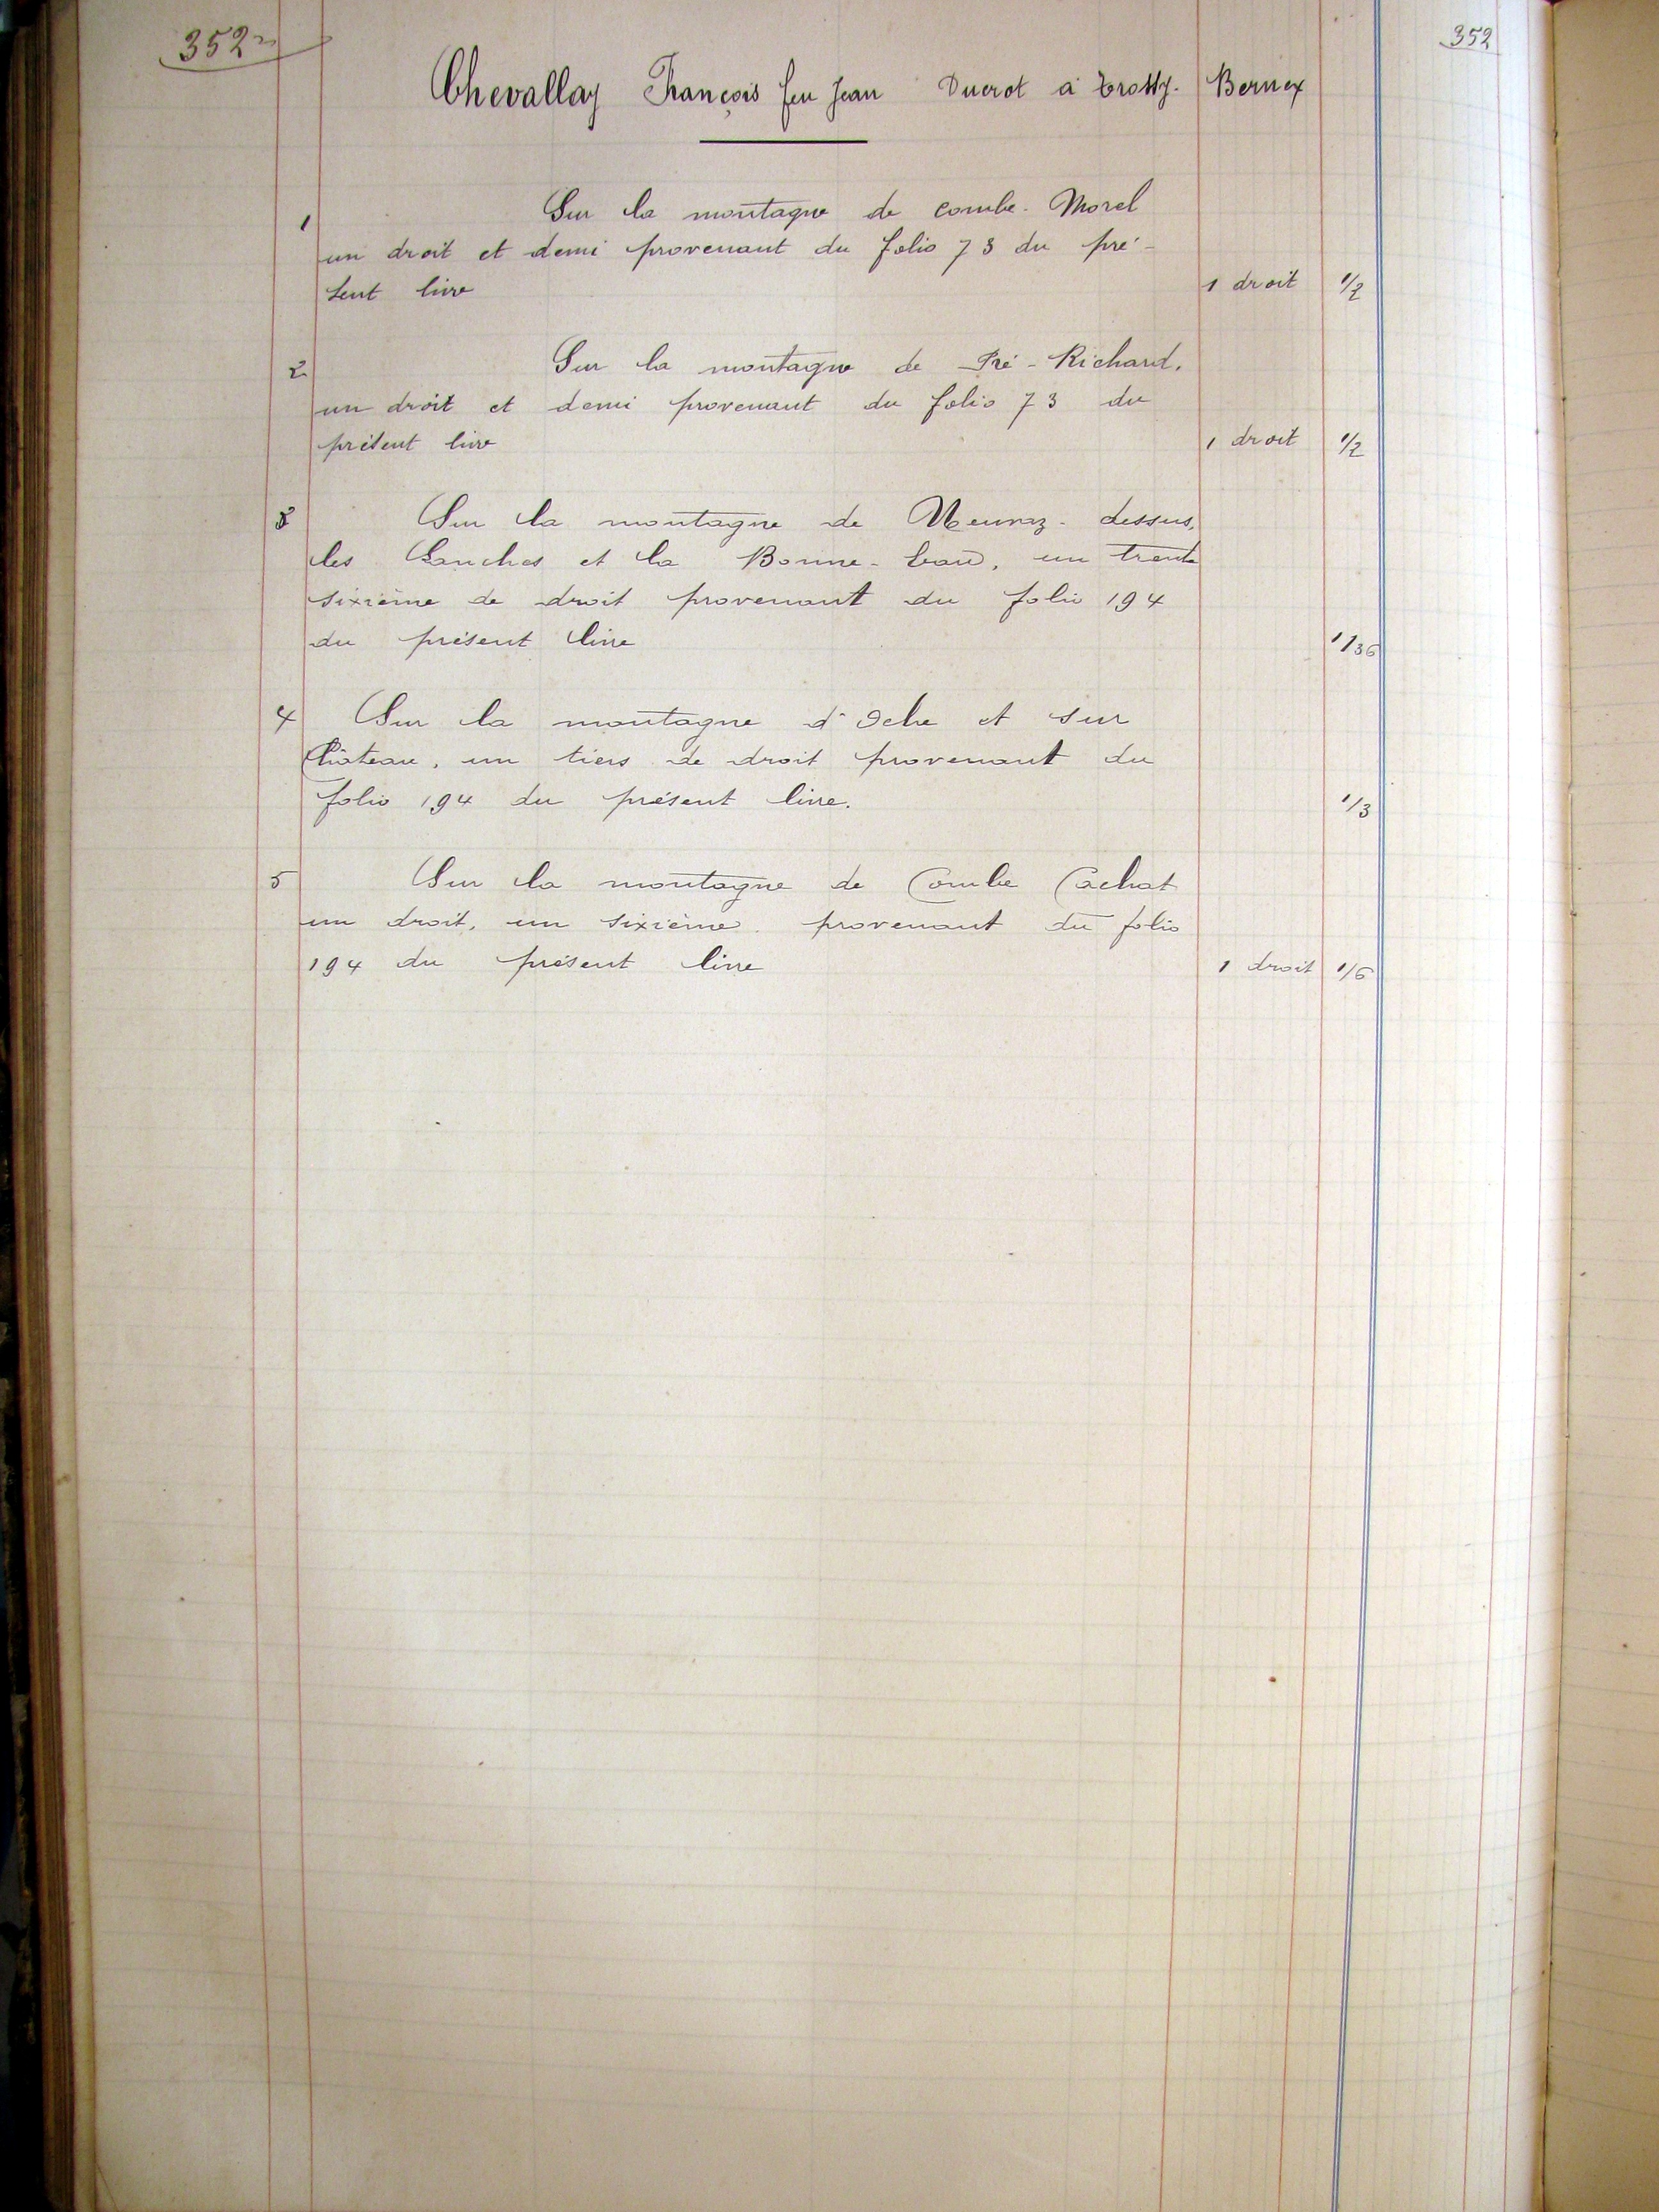 352
352
Chevallay François feu Jean Ducrot à trossy. Bernex
1 Sur la montagne de combe-Morel
un droit et demi provenant du folio 73 du pré-
sent livre 1 droit 1/2
2 Sur la montagne de Pré-Richard.
un droit et demi provenant du folio 73 du
présent livre 1 droit 1/2
3 Sur la montagne de Neuvaz-dessus,
les Lanches et la Bonne-Eau, un trente
sixième de droit provenant du folio 194
du présent livre 1/36
4 Sur la montagne d'Oche et sur
Château, un tiers de droit provenant du
folio 194 du présent livre. 1/3
5 Sur la montagne de Combe Cachat
un droit, un sixième provenant du folio
194 du présent livre 1 droit 1/6